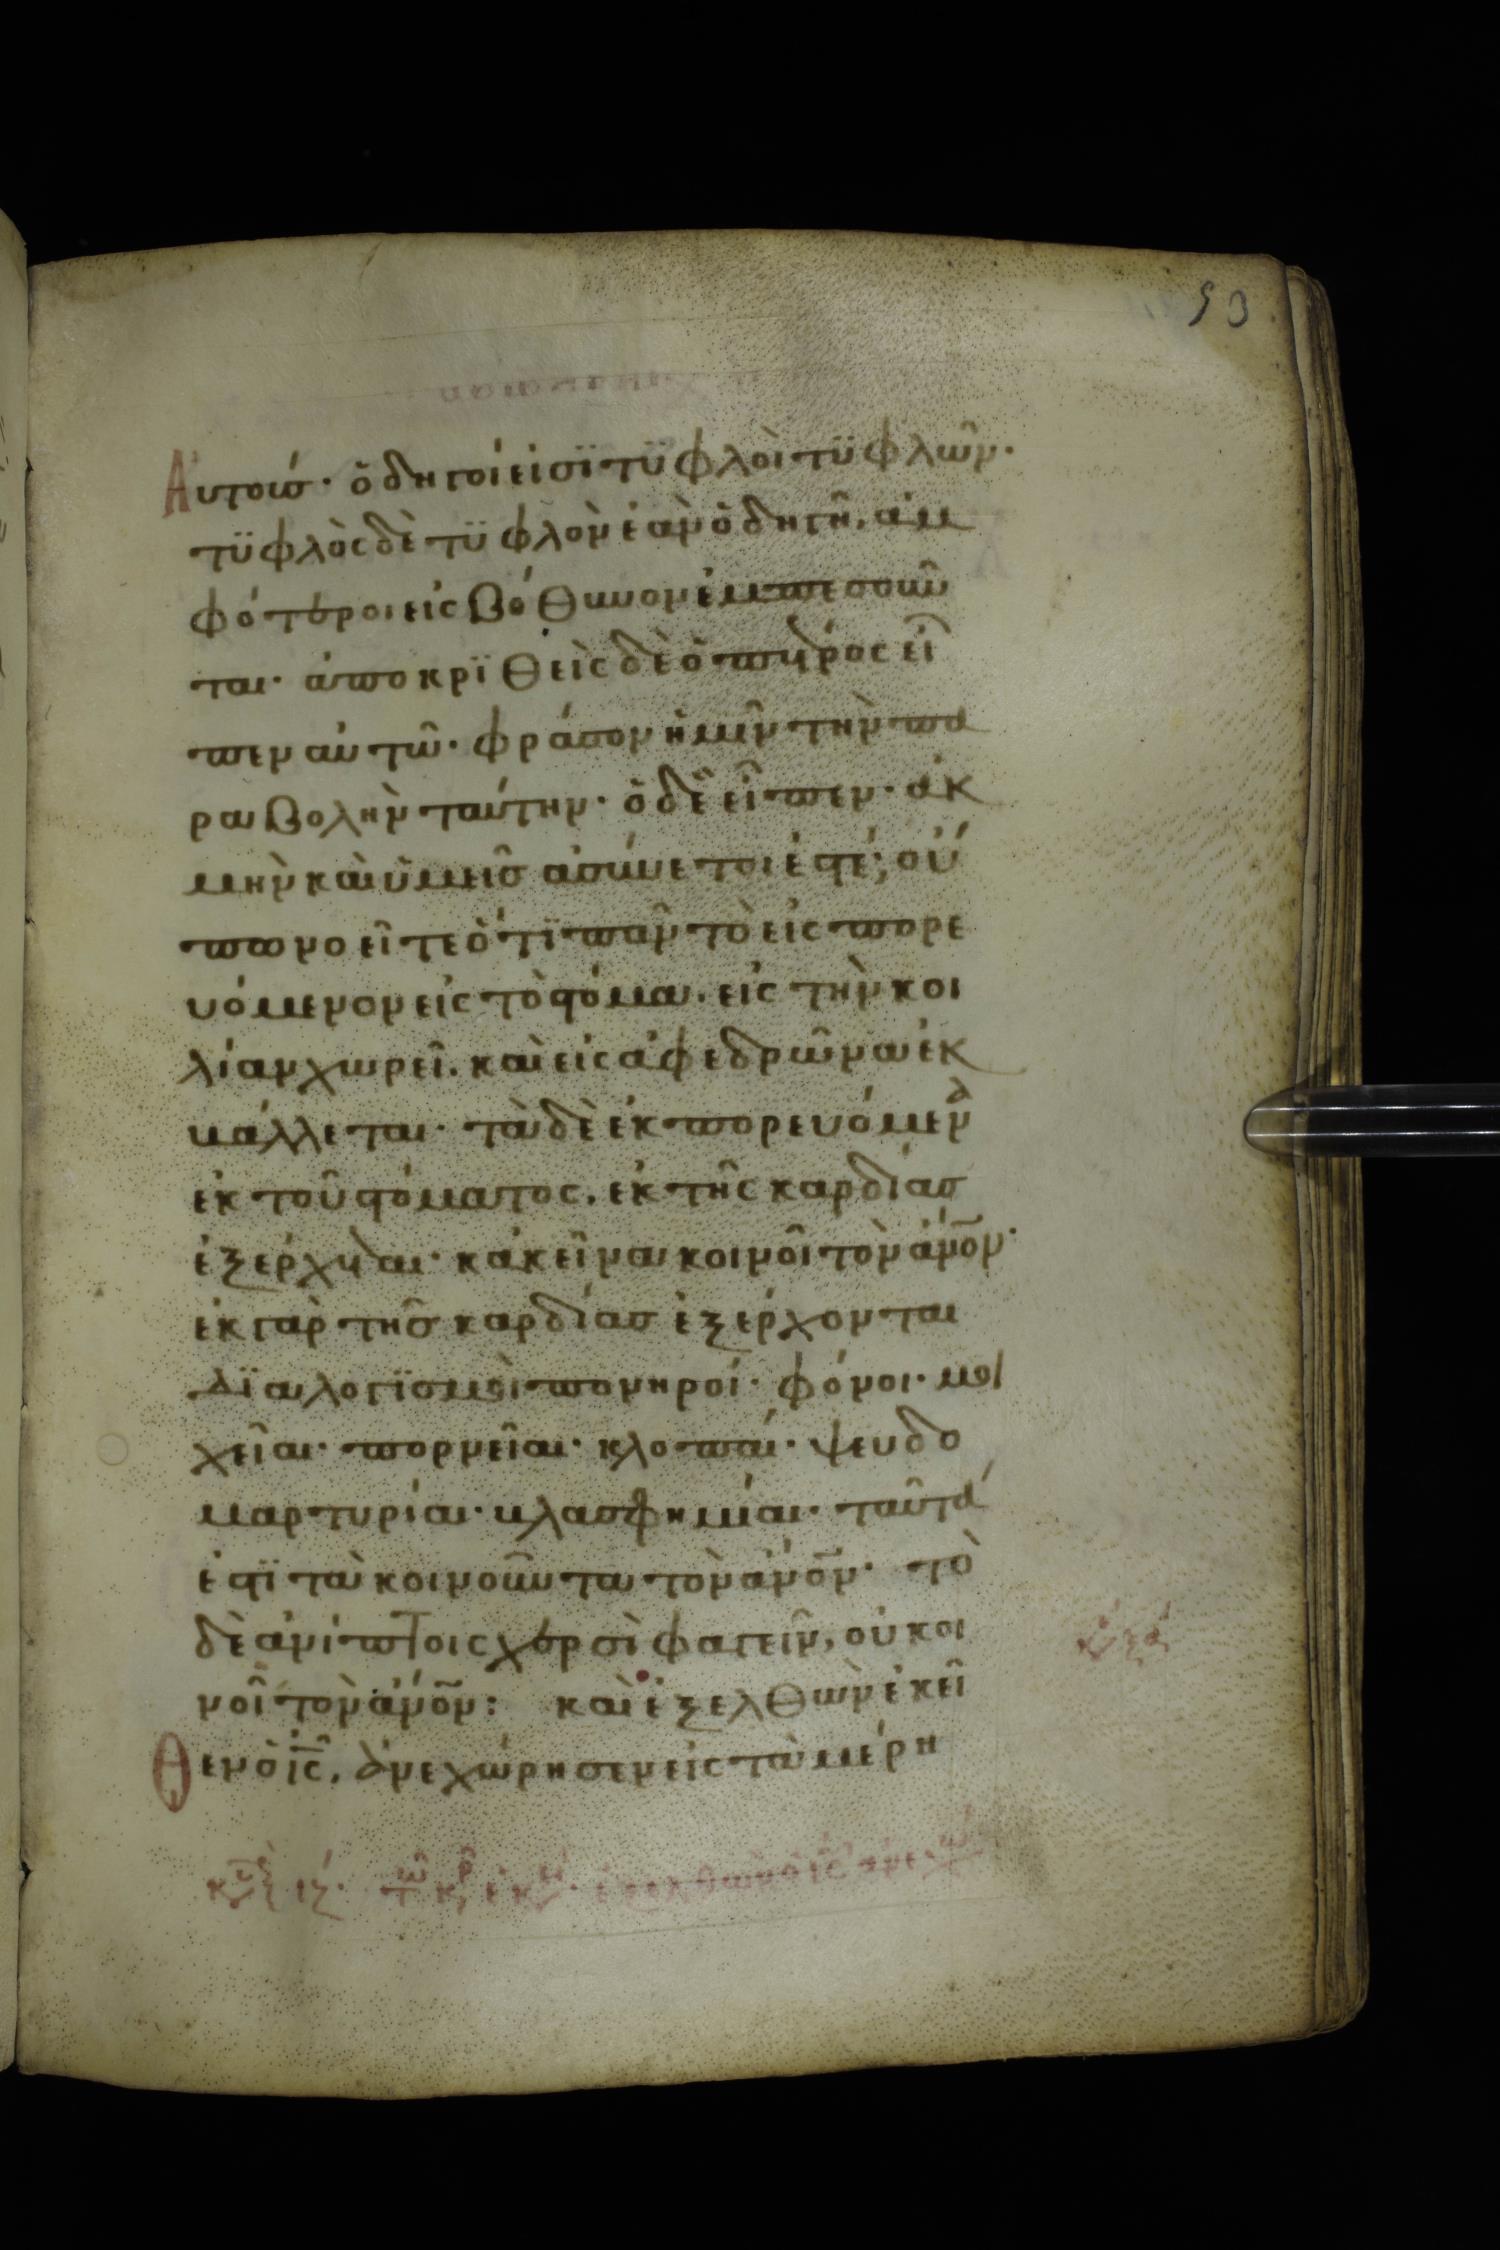 53
Αὐτούσ· ὁδηγοί εἰσϊ τϋφλοὶ τϋφλῶν·
τϋφλὸς δὲ τϋφλὸν ἐὰν ὁδηγῆ, ἀμ
φότεροι εἰς βόθυνον ἐμπεσοῦν
ται· ἀποκρϊθεὶς δὲ ὁ πέτρος εἶ
πεν αὐτῶ· φράσον ἡμῖν τὴν πα
ραβολὴν ταύτην· ὁ δὲ εἶπεν· ἀκ
μὴν καὶ ὑμεῖσ ἀσύνετοι ἐστέ; οὔ
πω νοεῖτε ὅτϊ πᾶν τὸ εἰς πορε
υόμενον εἰς τὸ στόμα, εἰς τὴν κοι
λίαν χωρεῖ, καὶ εἰς ἀφεδρῶνα ἐκ
βάλλεται· τὰ δὲ ἐκπορευόμενα
ἐκ τοῦ στόματος, ἐκ τῆς καρδίασ
ἐξέρχεται· κἀκεῖνα κοινοῖ τὸν ἄνον·
ἐκ γὰρ τῆσ καρδίασ ἐξέρχονται
δϊαλογϊσμοὶ πονηροί· φόνοι· μοι
χεῖαι· πορνεῖαι· κλοπαί· ψευδο
μαρτυρίαι· βλασφημίαι· ταῦτά
ἐστϊ τὰ κοινοῦντα τὸν ἄνον· τὸ
δὲ ἀνίπτοις χερσὶ φαγεῖν, οὐ κοι
νοῖ τὸν ἄνον: καὶ ἐξελθὼν ἐκεῖ
Θεν ὁ ἰς, ἀνεχώρησεν εἰς τὰ μέρη